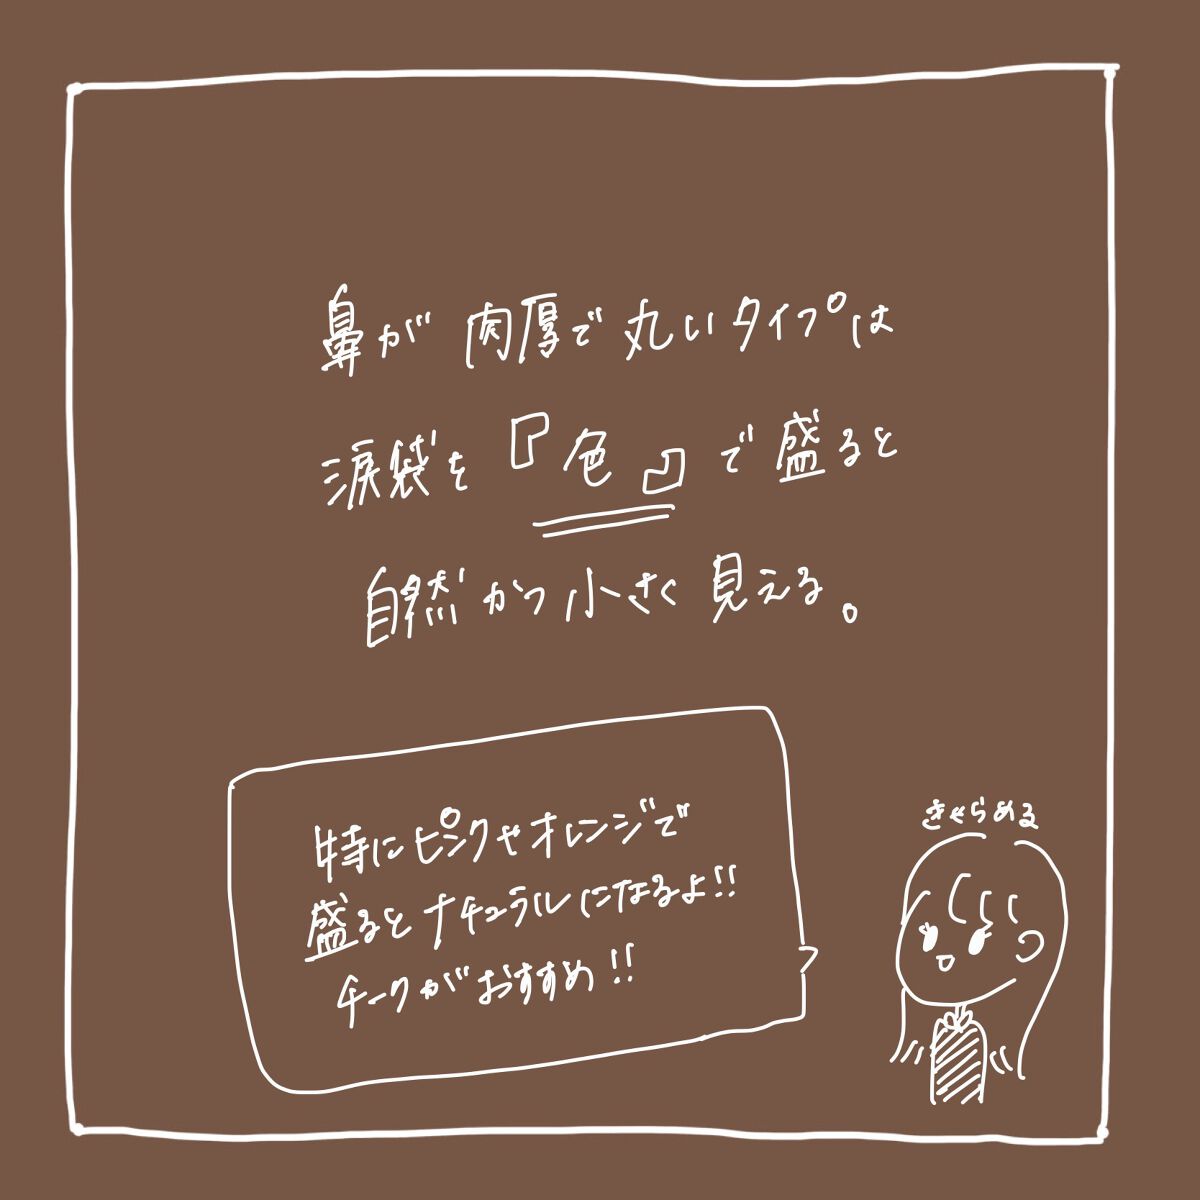 鼻が肉厚で丸いタイプは
涙袋を『色』で盛ると
自然かつ小さく見える。
特にピンクやオレンジで
盛るとナチュラルになるよ!!
チークがおすすめ!!
きせらめる